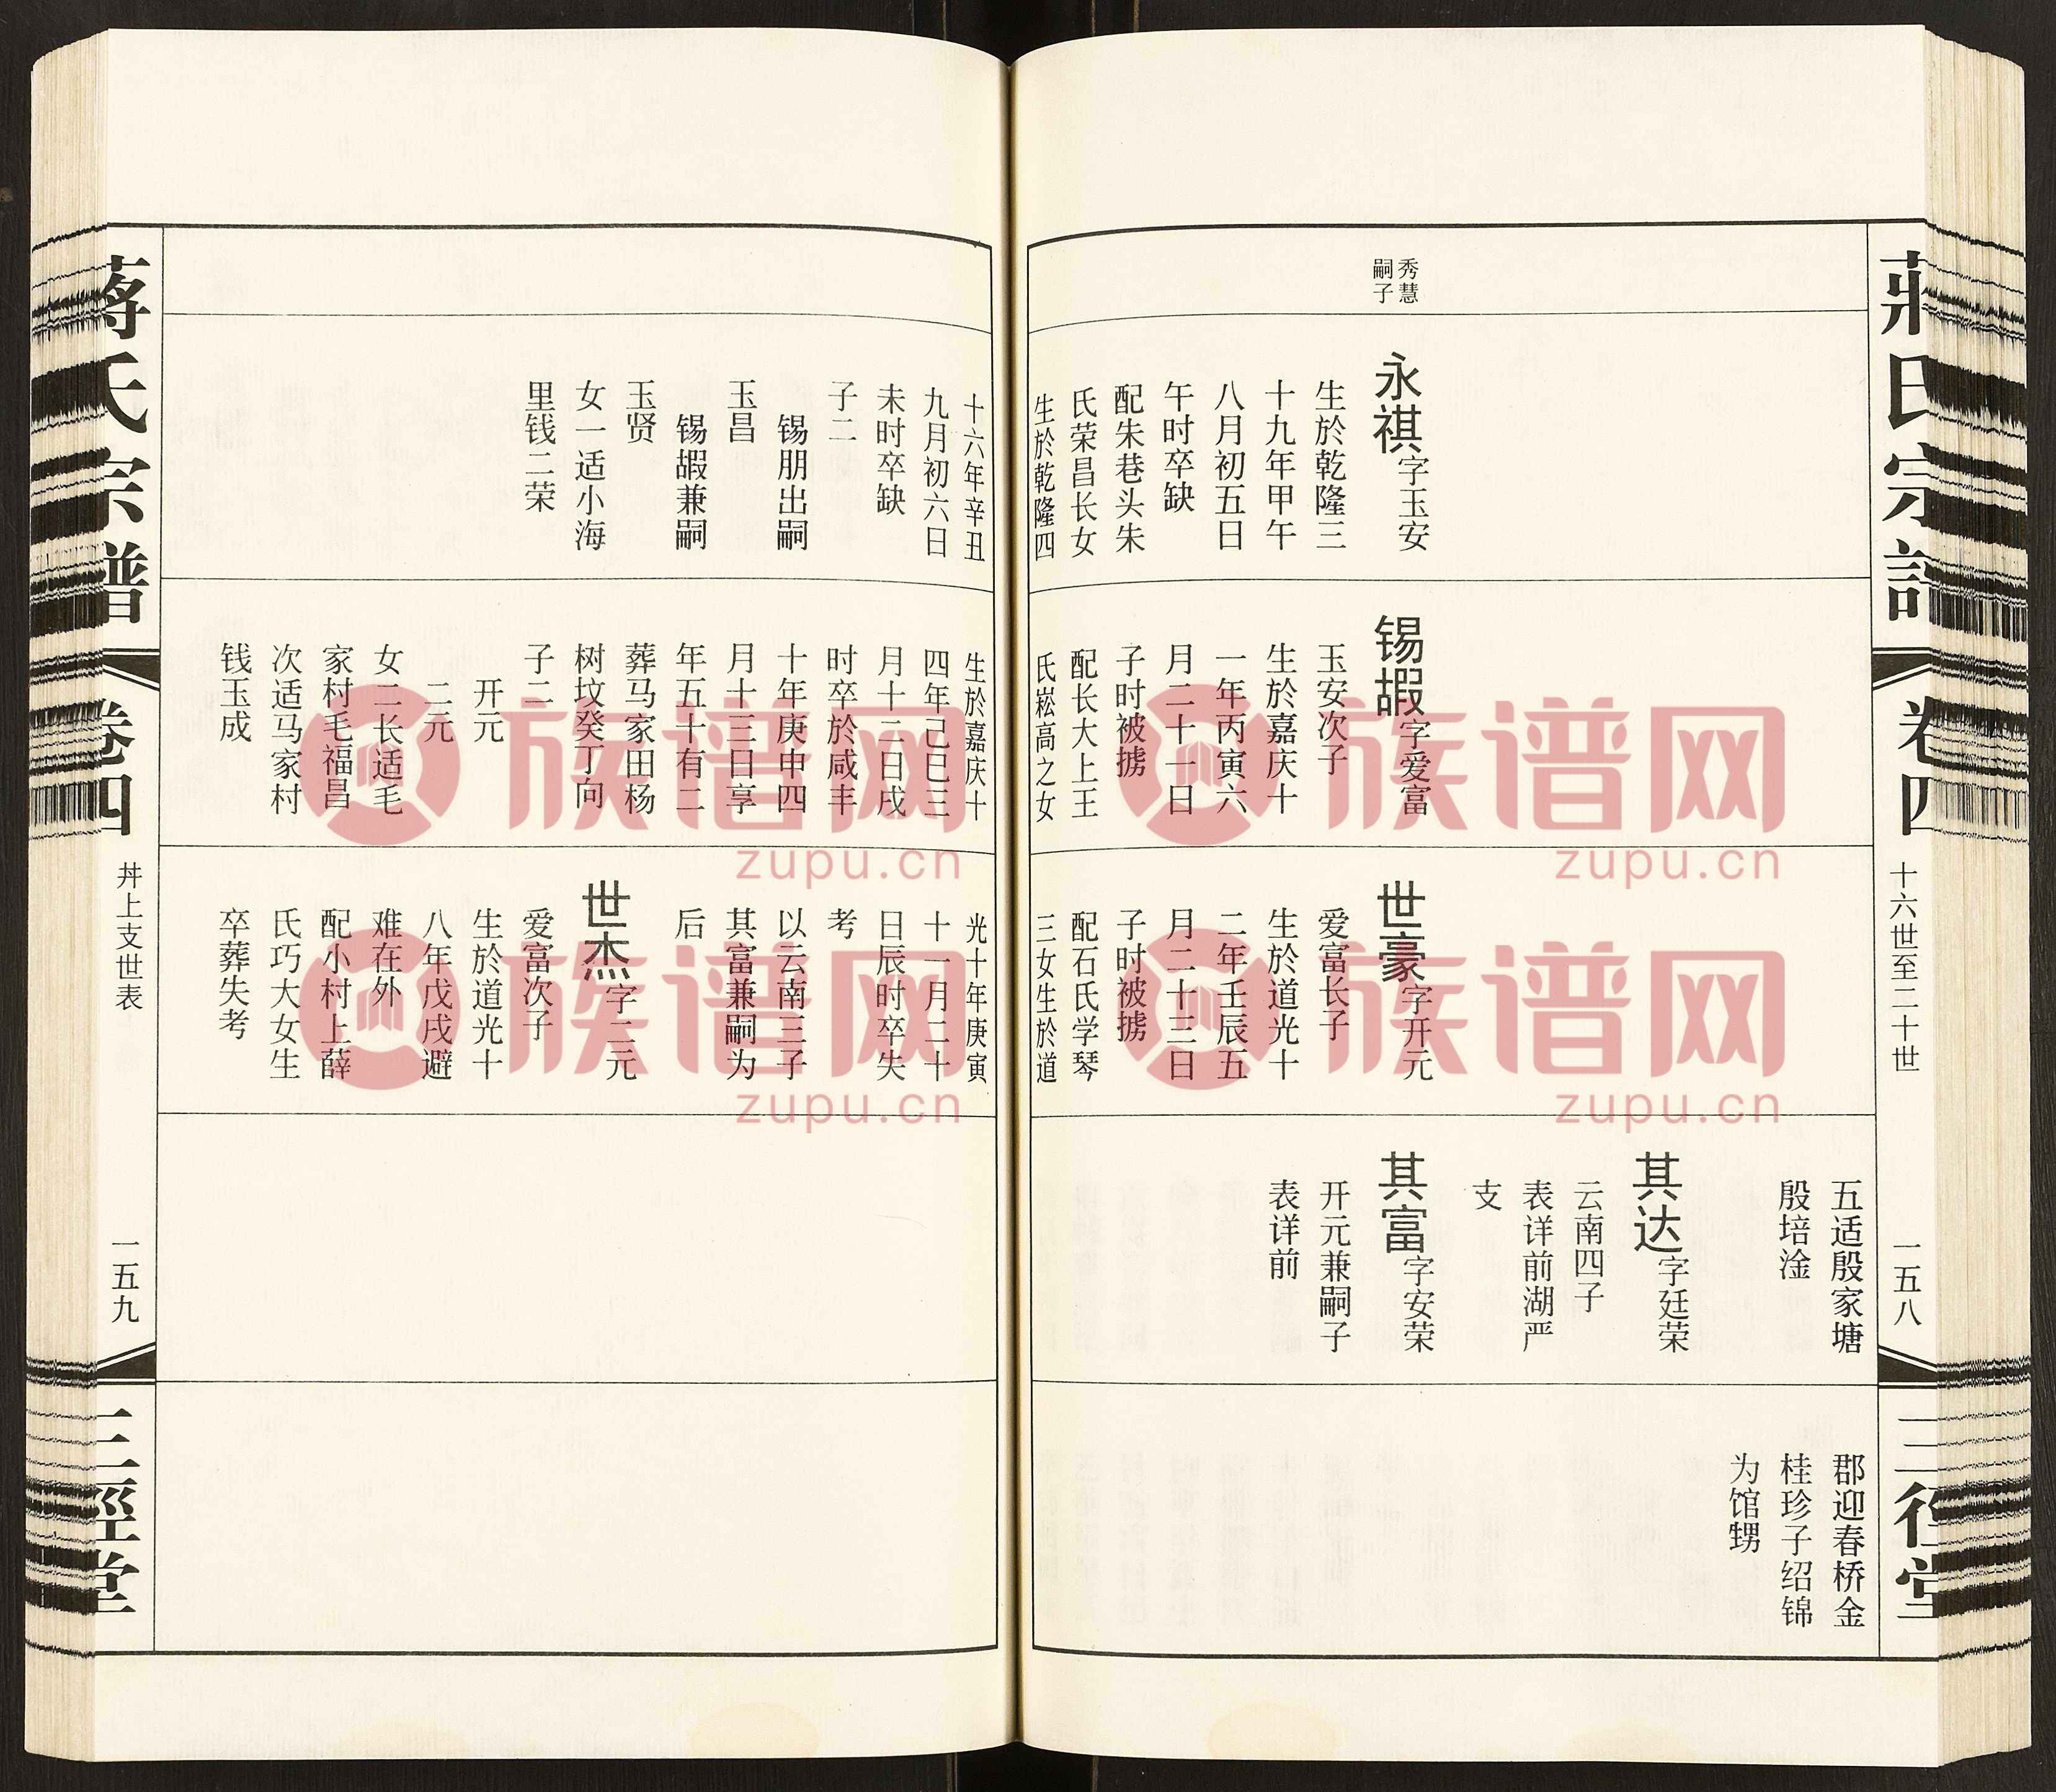 蔣氏宗譜
卷四
十六世至二十世
一五八
三径堂
秀慧
嗣子
永祺字玉安
生於乾隆三
十九年甲午
八月初五日
午时卒缺
配朱巷头朱
氏荣昌长女
生於乾隆四
锡嘏字爱富
玉安次子
生於嘉庆十
一年丙寅六
月二十一日
子时被掳
配长大上王
氏崧高之女
世豪字开元
爱富长子
生於道光十
二年壬辰五
月二十三日
子时被掳
配石氏学琴
三女生於道
五适殷家塘
殷培淦
其达字廷荣
云南四子
表详前湖严
支
其富字安荣
开元兼嗣子
表详前
郡迎春桥金
桂珍子绍锦
为馆甥
十六年辛丑
九月初六日
未时卒缺
子二
锡朋出嗣
玉昌
锡嘏兼嗣
玉贤
女一适小海
里钱二荣
生於嘉庆十
四年己巳三
月十二日戌
时卒於咸丰
十年庚申四
月十三日享
年五十有二
葬马家田杨
树坟癸丁向
子二
开元
二元
女二长适毛
家村毛福昌
次适马家村
钱玉成
光十年庚寅
十一月二十
日辰时卒失
考
以云南三子
其富兼嗣为
后
世杰字二元
爱富次子
生於道光十
八年戊戌避
难在外
配小村上薛
氏巧大女生
卒葬失考
蒋氏宗谱
卷四
丼上支世表
一五九
三徑堂
族谱网
zupu.cn
族谱网
zupu.cn
族谱网
zupu.cn
族谱网
zupu.cn